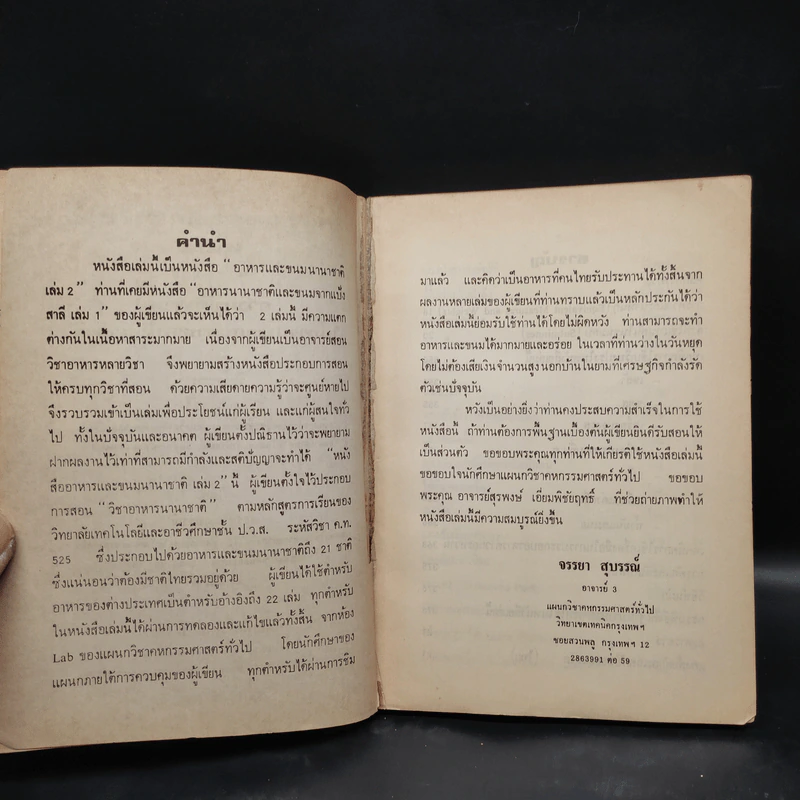 คำนำ
หนังสือเล่มนี้เป็นหนังสือ “อาหารและขนมนานาชาติ
เล่ม 2” ท่านที่เคยมีหนังสือ “อาหารนานาชาติและขนมจากแป้ง
สาลี เล่ม 1” ของผู้เขียนแล้วจะเห็นได้ว่า 2 เล่มนี้ มีความแตก
ต่างกันในเนื้อหาสาระมากมาย เนื่องจากผู้เขียนเป็นอาจารย์สอน
วิชาอาหารหลายวิชา จึงพยายามสร้างหนังสือประกอบการสอน
ให้ครบทุกวิชาที่สอน ด้วยความเสียดายความรู้ว่าจะศูนย์หายไป
จึงรวบรวมเข้าเป็นเล่มเพื่อประโยชน์แก่ผู้เรียน และแก่ผู้สนใจทั่ว
ไป ทั้งในปัจจุบันและอนาคต ผู้เขียนตั้งปณิธานไว้ว่าจะพยายาม
ฝากผลงานไว้เท่าที่สามารถมีกำลังและสติปัญญาจะทำได้ “หนัง
สืออาหารและขนมนานาชาติ เล่ม 2” นี้ ผู้เขียนตั้งใจไว้ประกอบ
การสอน “วิชาอาหารนานาชาติ” ตามหลักสูตรการเรียนของ
วิทยาลัยเทคโนโลยีและอาชีวศึกษาชั้น ป.ว.ส. รหัสวิชา ค.ท.
525 ซึ่งประกอบไปด้วยอาหารและขนมนานาชาติถึง 21 ชาติ
ซึ่งแน่นอนว่าต้องมีชาติไทยรวมอยู่ด้วย ผู้เขียนได้ใช้ตำหรับ
อาหารของต่างประเทศเป็นตำหรับอ้างอิงถึง 22 เล่ม ทุกตำหรับ
ในหนังสือเล่มนี้ได้ผ่านการทดลองและแก้ไขแล้วทั้งสิ้น จากห้อง
Lab ของแผนกวิชาคหกรรมศาสตร์ทั่วไป โดยนักศึกษาของ
แผนกภายใต้การควบคุมของผู้เขียน ทุกตำหรับได้ผ่านการชิม
มาแล้ว และคิดว่าเป็นอาหารที่คนไทยรับประทานได้ทั้งสิ้นจาก
ผลงานหลายเล่มของผู้เขียนที่ท่านทราบแล้วเป็นหลักประกันได้ว่า
หนังสือเล่มนี้ย่อมรับใช้ท่านได้โดยไม่ผิดหวัง ท่านสามารถจะทำ
อาหารและขนมได้มากมายและอร่อย ในเวลาที่ท่านว่างในวันหยุด
โดยไม่ต้องเสียเงินจำนวนสูงนอกบ้านในยามที่เศรษฐกิจกำลังรัด
ตัวเช่นปัจจุบัน
หวังเป็นอย่างยิ่งว่าท่านคงประสบความสำเร็จในการใช้
หนังสือนี้ ถ้าท่านต้องการพื้นฐานเบื้องต้นผู้เขียนยินดีรับสอนให้
เป็นส่วนตัว ขอขอบพระคุณทุกท่านที่ให้เกียรติใช้หนังสือเล่มนี้
ขอขอบใจนักศึกษาแผนกวิชาคหกรรมศาสตร์ทั่วไป ขอขอบ
พระคุณ อาจารย์สุรพงษ์ เอี่ยมพิชัยฤทธิ์ ที่ช่วยถ่ายภาพทำให้
หนังสือเล่มนี้มีความสมบูรณ์ยิ่งขึ้น
จรรยา สุบรรณ์
อาจารย์ 3
แผนกวิชาคหกรรมศาสตร์ทั่วไป
วิทยาเขตเทคนิคกรุงเทพฯ
ซอยสวนพลู กรุงเทพฯ 12
2863991 ต่อ 59